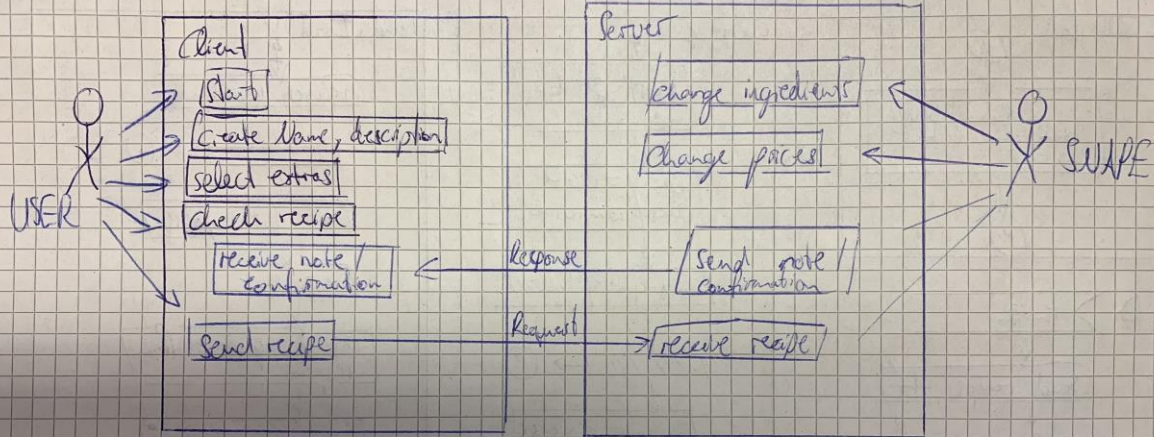 Client
Start
Create Name, description
select extras
check recipe
receive note /
confirmation
Send recipe
USER
Response
Request
Server
change ingredients
Change prices
Send note /
confirmation
receive recipe
SNAPE